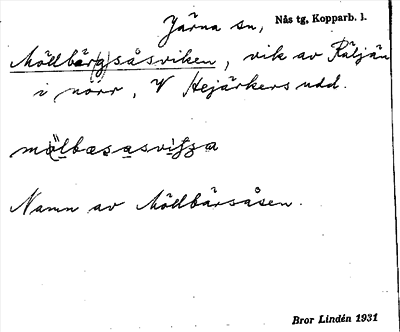 Järna sn, Nås tg, Kopparb. l.
Möllbär(g)såsviken, vik av Räljän
i norr, V Hejärkers udd.
Namn av Möllbärsåsen.
Bror Lindén 1931